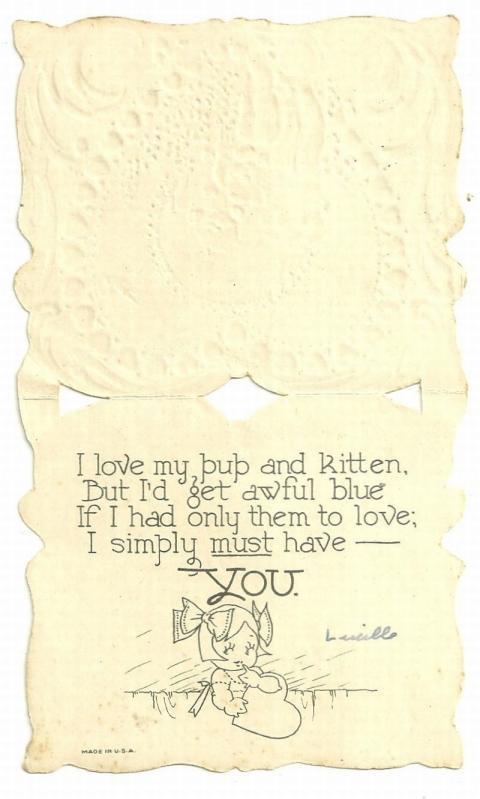 I love my pup and kitten,
But I'd get awful blue
If I had only them to love;
I simply must have —
YOU.
Lucille
MADE IN U.S.A.